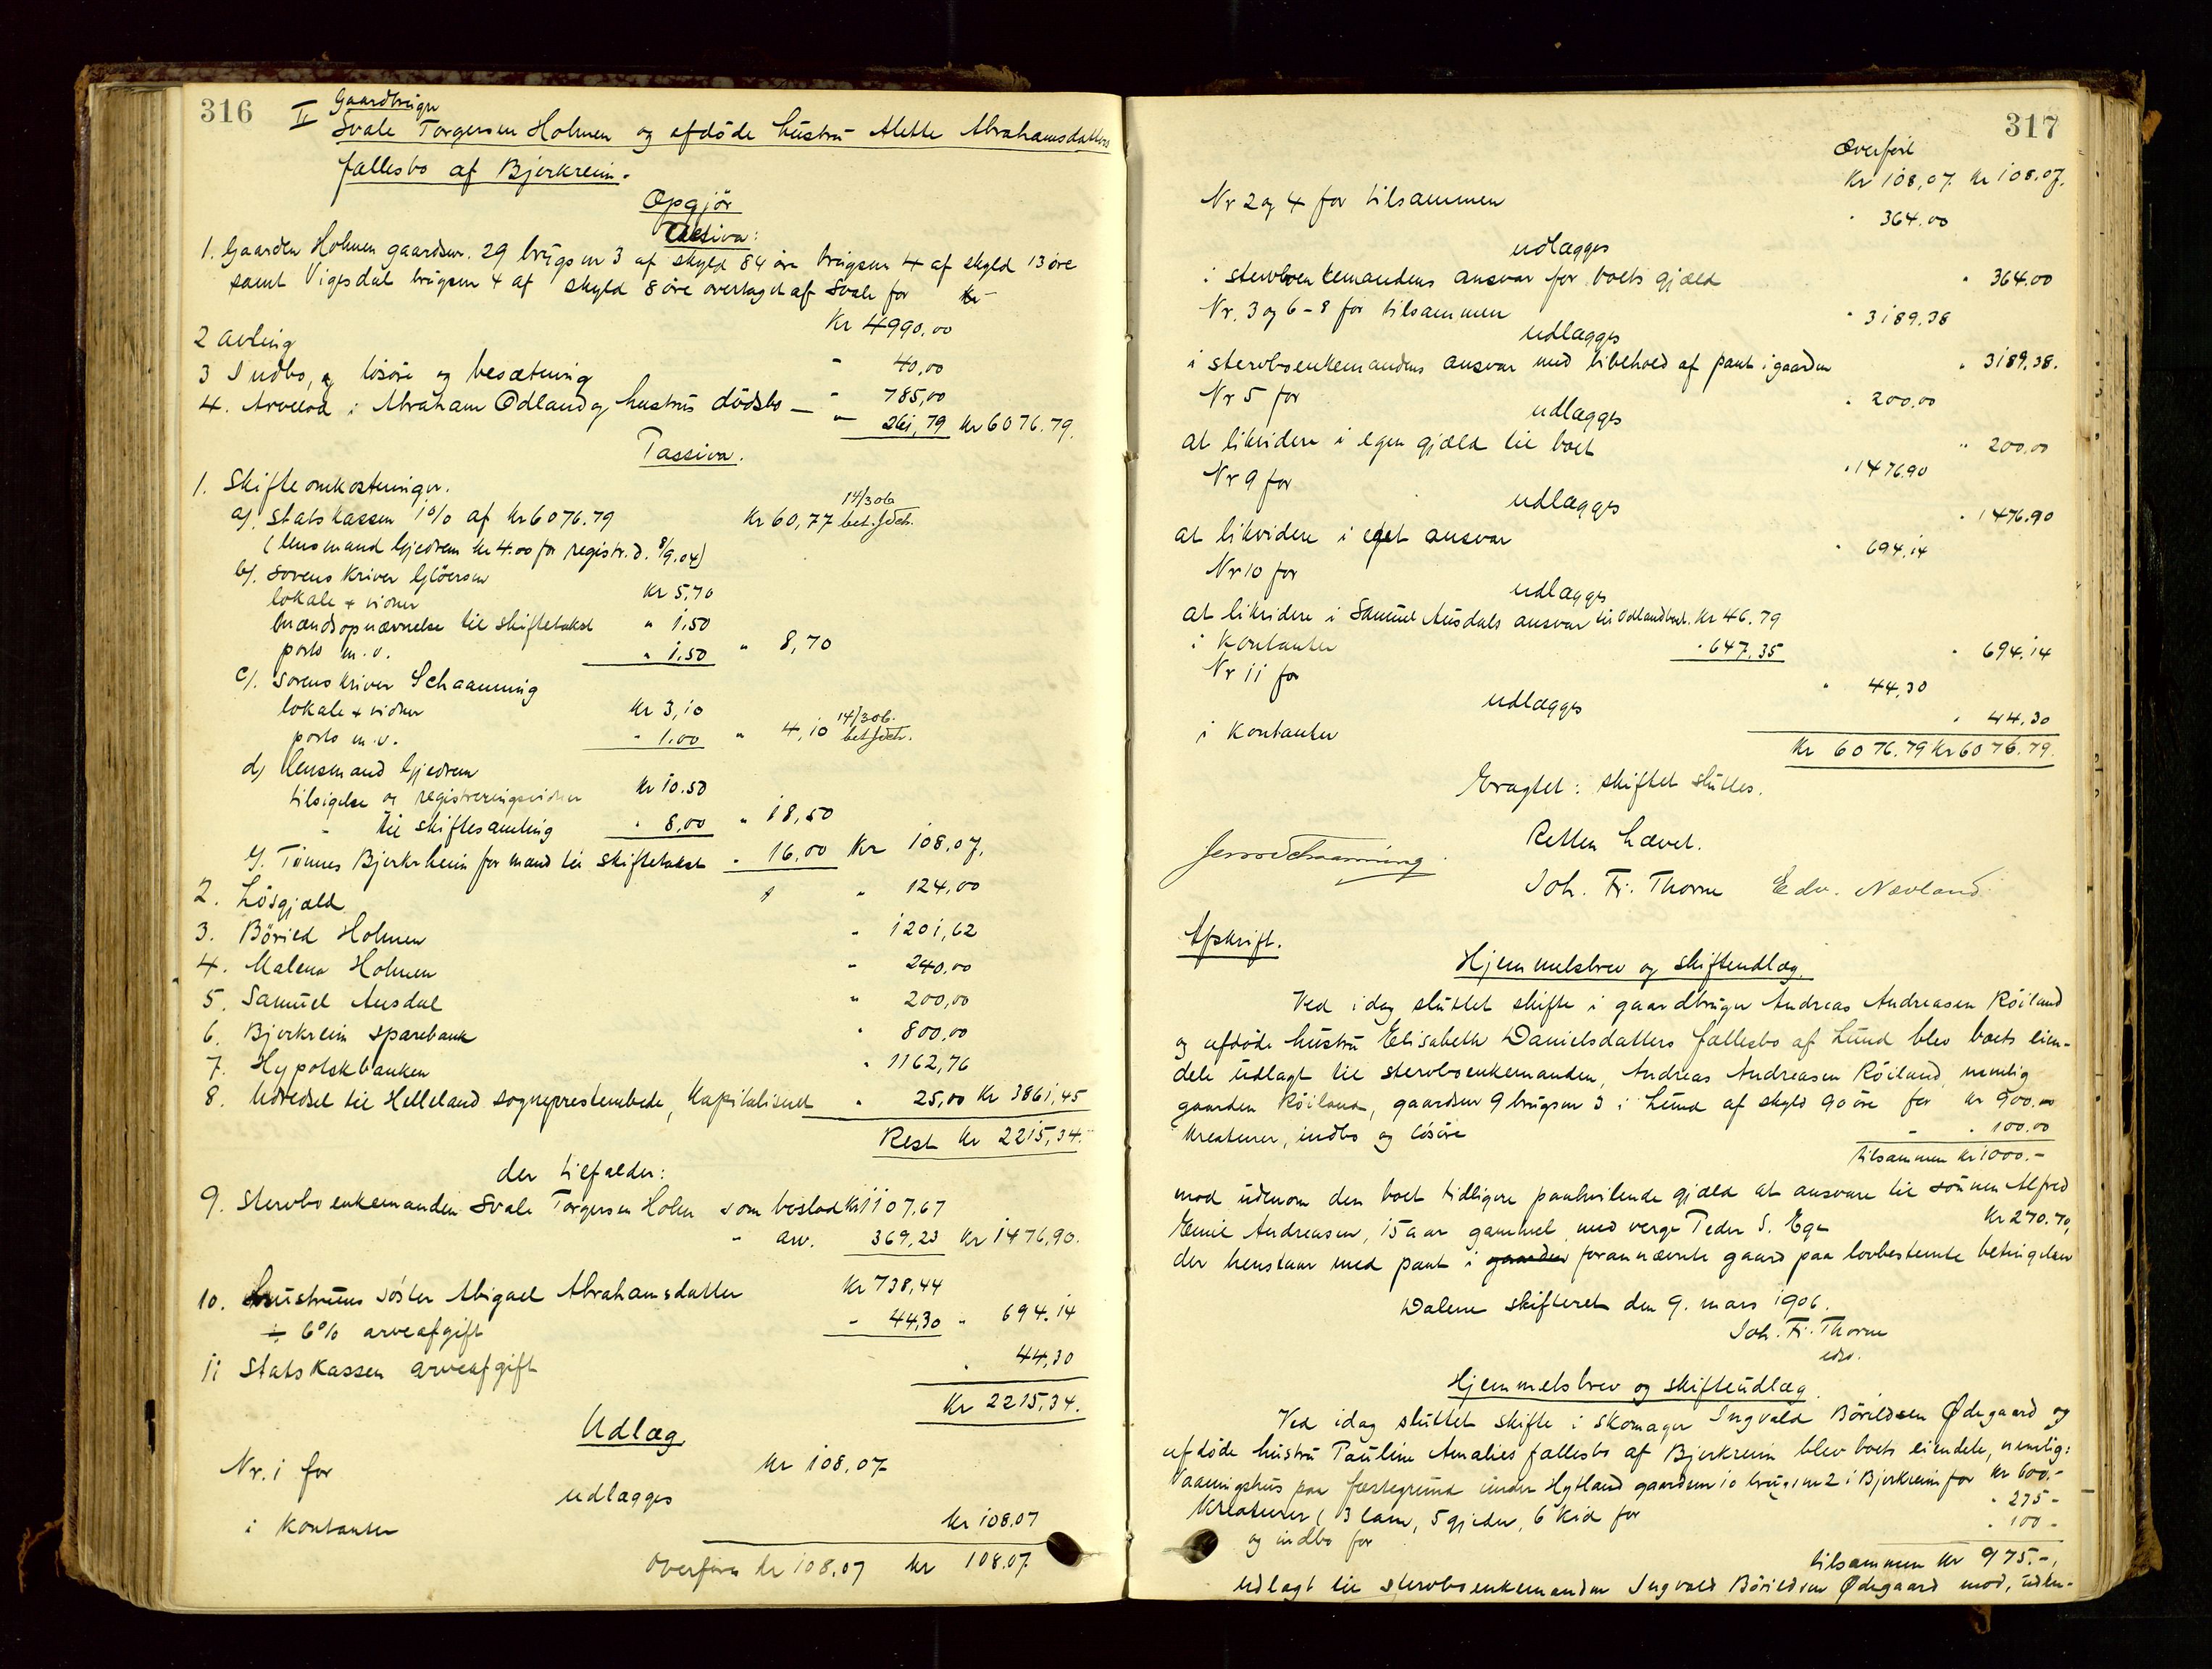 316
II Gaardbruger
Svale Torgersen Holmen og afdöde hustru Alette Abrahamsdatters
fællesbo af Bjerkreim.
Opgjör
Activa:
1. Gaarden Holmen gaardsnr. 29 brugsnr 3 af skyld 84 öre brugsnr 4 af skyld 13 öre
samt Vigesdal brugsnr 4 af skyld 8 öre overtaget af Svale for
Kr 4990,00
2 avling " 40,00
3 Indbo, lösöre og besætning " 785,00
4. Arvelod i Abraham Ødland og hustrus dödsbo — " 261,79 Kr 6076.79.
Passiva.
1. Skifteomkostninger.
a). Statskassen 1% af Kr 6076.79 Kr 60,77 14/3 06 bet.
(lensmand Gjedrem Kr 4.00 for registr. d. 8/9.04)
b). Sorenskriver Glöersen Kr 5,70
lokale + vidner " 1.50
mandsopnævnelse til skiftetakst
porto m.v. " 1.50 " 8,70
c). Sorenskriver Schaanning
lokale + vidner Kr 3,10
porto m.v. " 1.00 " 4,10 14/3 06. bet.
d) lensmand Gjedrem
tilsigelse og registreringsvidner Kr 10.50
" til skiftesamling " 8,00 " 18,50
e). Tönnes Bjerkrheim for mænd til skiftetakst " 16.00 Kr 108.07.
2. Lösgjæld " 124,00
3. Böried Holmen " 1201,62
4. Malena Holmen " 240,00
5. Samuel Ausdal " 200,00
6. Bjerkreim sparebank " 800.00
7. Hypotekbanken " 1162,76
8. Udredsel til Helleland sogneprestembede, kapitaliseret " 25,00 Kr 3861,45
Rest Kr 2215,34.
der tilfalder:
9. Stervboenkemanden Svale Torgersen Holm som boslod Kr 1107.67
" arv. 369,23 Kr 1476,90.
10. hustruens söster Abigael Abrahamsdatter Kr 738,44
÷ 6% arveafgift " 44,30 " 694.14
11 Statskassen arveafgift " 44,30
Kr 2215,34.
Udlæg.
Nr. 1 for Kr 108.07
udlægges
i Kontanter Kr 108.07
Overføres Kr 108.07 Kr 108.07.
317
Overført
Kr 108,07. Kr 108.07.
Nr 2 og 4 for tilsammen " 364.00
udlægges
i stervboenkemandens ansvar for boets gjæld " 364.00
Nr. 3 og 6-8 for tilsammen " 3189.38
udlægges
i stervboenkemandens ansvar med bibehold af pant i gaarden " 3189.38.
Nr 5 for " 200.00
udlægges
at likvidere i egen gjæld til boet " 200.00
Nr 9 for " 1476.90
udlægges
at likvidere i eget ansvar " 1476.90
Nr 10 for " 694.14
udlægges
at likvidere i Samuel Ausdals ansvar til Ødlandboet. Kr 46.79
i Kontanter " 647.35 " 694.14
Nr 11 for " 44,30
udlægges
i Kontanter " 44.30
Kr 6076.79 Kr 6076.79.
Eragtet: skiftet sluttes.
Retten hævet.
Jens Schaanning
Joh. Fr. Thorne Edv. Nævland
Afskrift.
Hjemmelsbrev og skifteudlæg.
Ved idag sluttet skifte i gaardbruger Andreas Andreasen Röiland
og afdöde hustru Elisabeth Danielsdatters fællesbo af Lund blev boets eien-
dele udlagt til stervboenkemanden, Andreas Andreasen Röiland, nemlig
gaarden Röiland, gaardsnr 9 brugsnr 3 i Lund af skyld 90 öre for Kr 900.00
Kreaturer, indbo og lösöre " " 100.00
tilsammen Kr 1000.-
mod udenom den boet tidligere paahvilende gjæld at ansvare til sönnen Alfred
Emil Andreasen, 15 aar gammel, med verge Peder S. Ege Kr 270.70,
der henstaar med pant i gaarden forannævnte gaard paa lovbestemte betingelser
Dalene skifteret den 9. mars 1906.
Joh. Fr. Thorne
edsv.
Hjemmelsbrev og skifteudlæg.
Ved idag sluttet skifte i skomager Ingvald Börildsen Ødegaard og
afdöde hustru Pauline Amalies fællesbo af Bjerkreim blev boets eiendele, nemlig:
Vaaningshus paa fæstegrund under Hytland gaardsnr 10 brugsnr 2 i Bjerkreim for Kr 600.-
Kreaturer (13 lam, 5 gjeder, 6 kid for " 275-
og indbo for " 100-
tilsammen Kr 975.-,
udlagt til stervboenkemanden Ingvald Börildsen Ødegaard mod, uden-